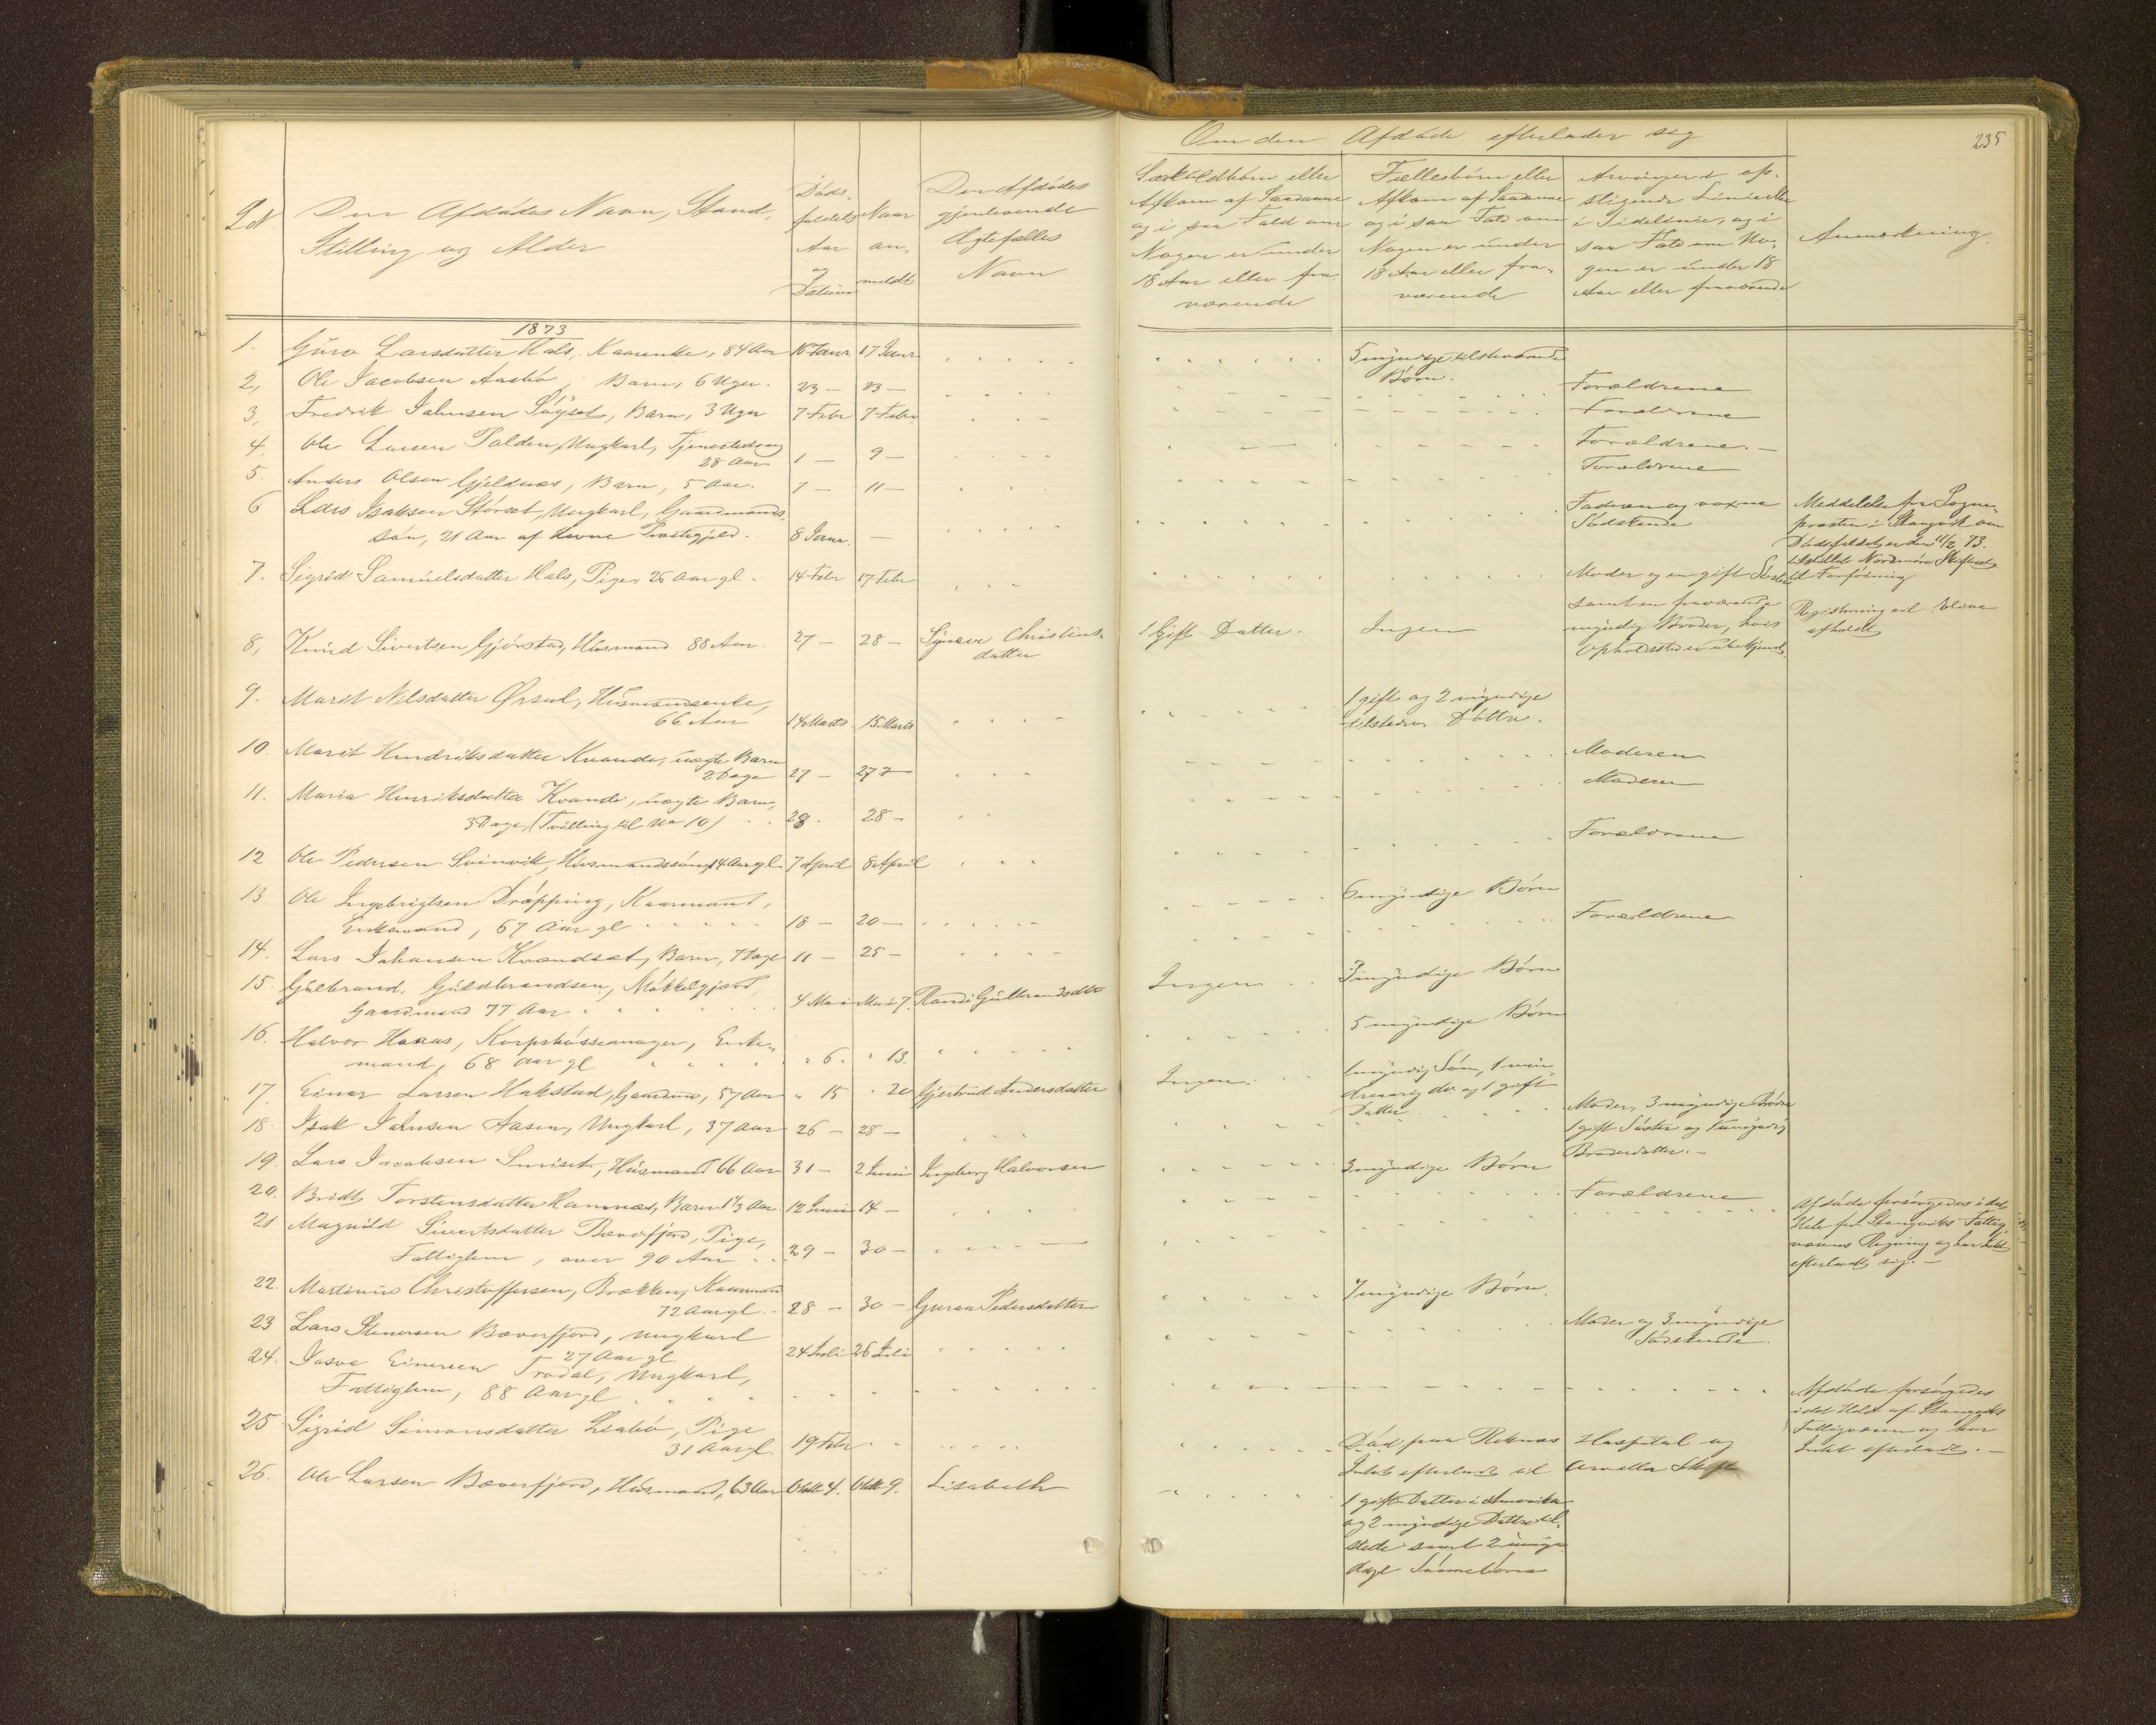 235
Om den Afdøde efterlader sig
Lø№
Den Afdødes Navn, Stand,
Stilling og Alder
Døds-
faldets
Aar
og
Datum
Naar
an-
meldt
Den Afdødes
gjenlevende
Ægtefælles
Navn
Særkuldbørn eller
Afkom af Saadanne
og i saa Fald om
Nogen er under
18 Aar eller fra-
værende
Fællesbørn eller
Afkom af Saadanne
og i saa Fald om
Nogen er under
18 Aar eller fra-
værende
Arvinger i op-
stigende Linie eller
i Sidelinie, og i
saa Fald om No-
gen er under 18
Aar eller fraværende
Anmærkning.
1873
1. Guro Larsdatter Hals, Kaarenke, 84 Aar 17 Janr 5 myndige tilstedeværende
Børn.
2, Ole Jacobsen Aasbø, Barn, 6 Uger. 23 — 23 — Forældrene
3, Fredrik Johnsen Barn, 3 Uger 7 Febr 7 Febr Forældrene
4. Ole Larsen Ungkarl, Tjenestedreng
28 Aar 1 — 9 — Forældrene. —
5. Anders Olsen Gjeldnæs, Barn, 5 Aar. 7 — 11 — Forældrene
6 Lars Isaksen Størset, Ungkarl, Gaardmands-
søn, 21 Aar af Præstegjeld. 8 Janr. — Faderen og voxne
Sødskende
Meddelelse fra Sogne-
præsten i Stangvik om
Dødsfaldet er den 11/2 73.
tilstillet Nordmøre Skifteret
til Forføining
7. Sigrid Samuelsdatter Hals, Pige, 26 Aar gl. 14 Febr 17 Febr Moder og en gift Søster
samt en fraværende
myndig Broder, hvis
Opholdssted er ubekjendt.
8, Knud Sivertsen Gjørstad, Husmand 88 Aar. 27 — 28 — Synneve Christens-
datter 1 Gift Datter. Ingen
Registrering vil blive
afholdt
9. Marit Nilsdatter Husmandsenke,
66 Aar 14 Marts 15 Marts 1 gift og 2 myndige
tilstedev. Døttre.
10. Marit Hendriksdatter Kvande, uægte Barn
2 Dage 27 — 27 — Moderen
11. Maria Henriksdatter Kvande, uægte Barn,
3 Dage, (Tvilling til No 10) 28. 28 — Moderen
12 Ole Pedersen Svinvik, Husmandssøn, 14 Aar gl. 7 April 8 April Forældrene
13. Ole Ingebrigtsen Drøpping, Kaarmand,
Enkemand, 67 Aar gl 18 — 20 — 6 myndige Børn
14. Lars Johansen Kvandset, Barn, 7 Dage 11 — 25 — Forældrene
15. Gulbrand Guldbrandsen, Møkkelgjerd,
Gaardmand 77 Aar 4 Mai Mai 7. Randi Gulbrandsdtr Ingen 3 myndige Børn
16. Halvor Korpsbøssemager, Enke-
mand, 68 Aar gl " 6. " 13. 5 myndige Børn
17. Einar Larsen Hakstad, Gaardm., 57 Aar " 15 " 20 Gjertrud Andersdatter Ingen. 1 myndig Søn, 1 min-
dreaarig do og 1 gift
Datter
18. Isak Johnsen Aasen, Ungkarl, 37 Aar 26 — 28 — Moder, 3 myndige Brødre
1 gift Søster og 1 umyndig
Broderdatter. —
19. Lars Jacobsen Husmand 66 Aar 31 — 2 Juni Ingeborg Halvorsen 3 myndige Børn
20. Bridt Torstensdatter Hamnes, Barn 1 1/3 Aar 12 Juni 14 — Forældrene
21 Magnild Sivertsdatter Bæverfjord, Pige,
Fattiglem, over 90 Aar 29 — 30 —
Afdøde forsørgedes i det
Hele for Stangviks Fattig-
væsens Regning og har Intet
efterladt sig. —
22. Martinus Christoffersen, Brækken, Kaarmand
72 Aar gl. 28 — 30 — Guraa Pedersdatter 7 myndige Børn.
23 Lars Bæverfjord, Ungkarl
27 Aar gl 24 Juli 26 Juli Moder og 3 myndige
Sødskende.
24. Einersen Trødal, Ungkarl,
Fattiglem, 88 Aar gl
Afdøde forsørgedes
i det Hele af Stangviks
Fattigvæsen og har
Intet efterladt. —
25 Sigrid Simonsdatter Liabø, Pige
31 Aar gl. 19 Febr Død paa Reknæs Hospital og
Intet efterladt til Arv eller Skifte
26. Ole Larsen Bæverfjord, Husmand, 63 Aar Oktb 4. Oktb 9. Lisabeth
1 gift Datter i Amerika
og 2 myndige Døttre til-
stede samt 2 umyn-
dige Sønnebørn